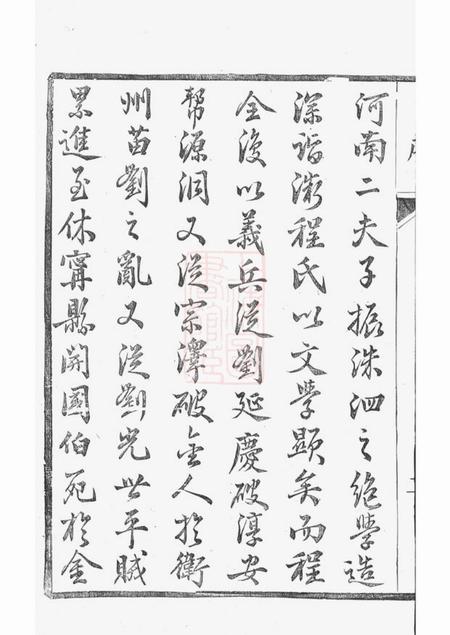 河南二夫子振洙泗之絶學造
深詣澈程氏以文學顯矣而程
全復以義兵從劉延慶破淳安
幫源洞又從宗澤破金人於衛
州苗劉之亂又從劉光世平賊
累進至休寧縣開國伯死於金